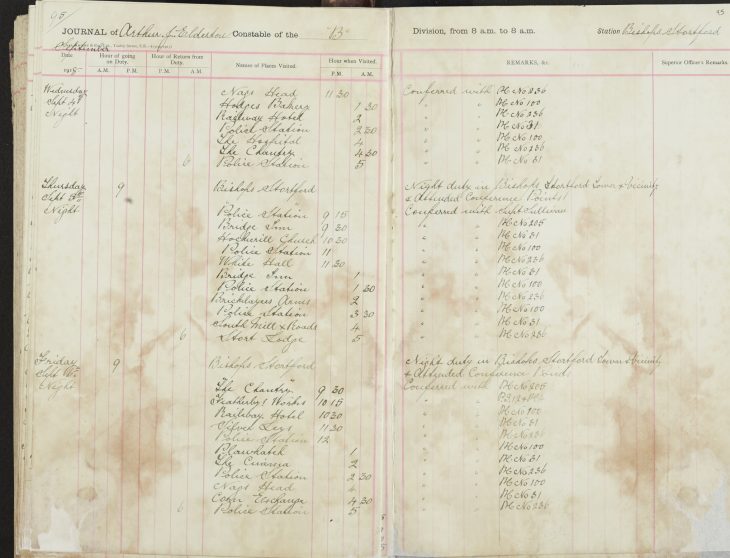 95
JOURNAL of Arthur J. Elderton Constable of the "B" Division, from 8 a.m. to 8 a.m. Station Bishops Stortford
September
Date Hour of going on Duty. Hour of Return from Duty. Names of Places Visited. Hour when Visited. REMARKS, &c. Superior Officer's Remarks.
191 A.M. P.M. A.M. P.M. P.M. A.M.
Wednesday Nags Head 11 30 Conferred with PC No 236
Sept Hodges Bakery 1 30 " " PC No 100
Night Railway Hotel 2 " " PC No 236
Police Station 2 30 " " PC No 31
The Hospital 4 " " PC No 100
The Chantry 4 30 " " PC No 236
6 Police Station 5 " " PC No 31
Thursday 9 Bishops Stortford Night duty in Bishops Stortford Town & Vicinity
Sept & Attended Conference Points
Night Police Station 9 15 Conferred with Supt Sullivan
Bridge Inn 9 30 " " PC No 205
Hockerill Church 10 30 " " PC No 31
Police Station 11 " " PC No 100
White Hall 11 30 " " PC No 236
Bridge Inn 1 " " PC No 31
Police Station 1 30 " " PC No 100
Bricklayers Arms 2 " " PC No 236
Police Station 3 30 " " PC No 100
South Mill & Roads 4 " " PC No 31
6 Stort Lodge 5 " " PC No 236
Friday 9 Bishops Stortford Night duty in Bishops Stortford Town & Vicinity
Sept & Attended Conference Points
Night The Chantry 9 30 Conferred with PC No 205
Featherby's Works 10 15
Railway Hotel 10 30 " " PC No 100
Silver Leys 11 30 " " PC No 31
Police Station 12 " " PC No 236
Plawhatch 1 " " PC No 100
The 2 " " PC No 31
Police Station 2 30 " " PC No 236
Nags Head 4 " " PC No 100
Corn Exchange 4 30 " " PC No 31
6 Police Station 5 " " PC No 236